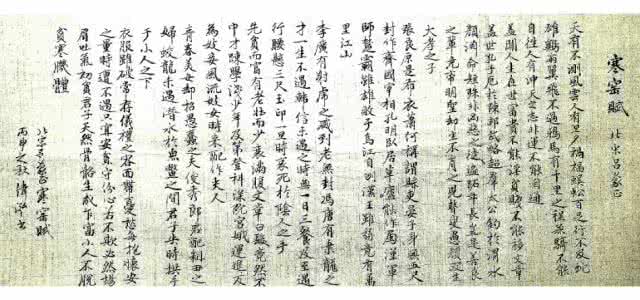 寒窑賦
北宋呂蒙正
天有不測風雲人有旦夕禍福蜈蚣百足行不及蛇
雄鷄兩翼飛不過鴉馬有千里之程無騎不能
自往人有沖天之志非運不能自通
蓋聞人生在世富貴不能淫貧賤不能移文章
蓋世孔子厄於陳邦武略超羣太公釣於渭水
顏淵命短殊非凶惡之徒盜跖年長豈是善良
之輩堯帝明聖却生不肖之兒瞽叟愚頑反生
大孝之子
張良原是布衣蕭何稱謂縣吏晏子身無五尺
封作齊國宰相孔明臥居草廬能作蜀漢軍
師楚霸雖雄敗于烏江自刎漢王雖弱竟有萬
里江山
李廣有射虎之威到老無封馮唐有乘龍之
才一生不遇韓信未遇之時無一日三餐及至遇
行腰懸三尺玉印一旦時衰死於陰人之手
先貧而富有老壯而少衰滿腹文章白髮竟然不
中才疎學淺少年及第登科深院宮娥運退反
為妓妾風流妓女時來配作夫人
青春美女却招愚蠢之夫俊秀郎君配粗丑之
婦蛟龍未遇潛水於魚鱉之間君子失時拱手
于小人之下
衣服雖破常存儀禮之容面帶憂愁每抱懷安
之量時遭不遇只宜安貧守份心若不欺必然揚
眉吐氣初貧君子天然骨骼生成乍富小人不脫
貧寒肌體
北宋呂蒙正寒窑賦
丙申之秋書